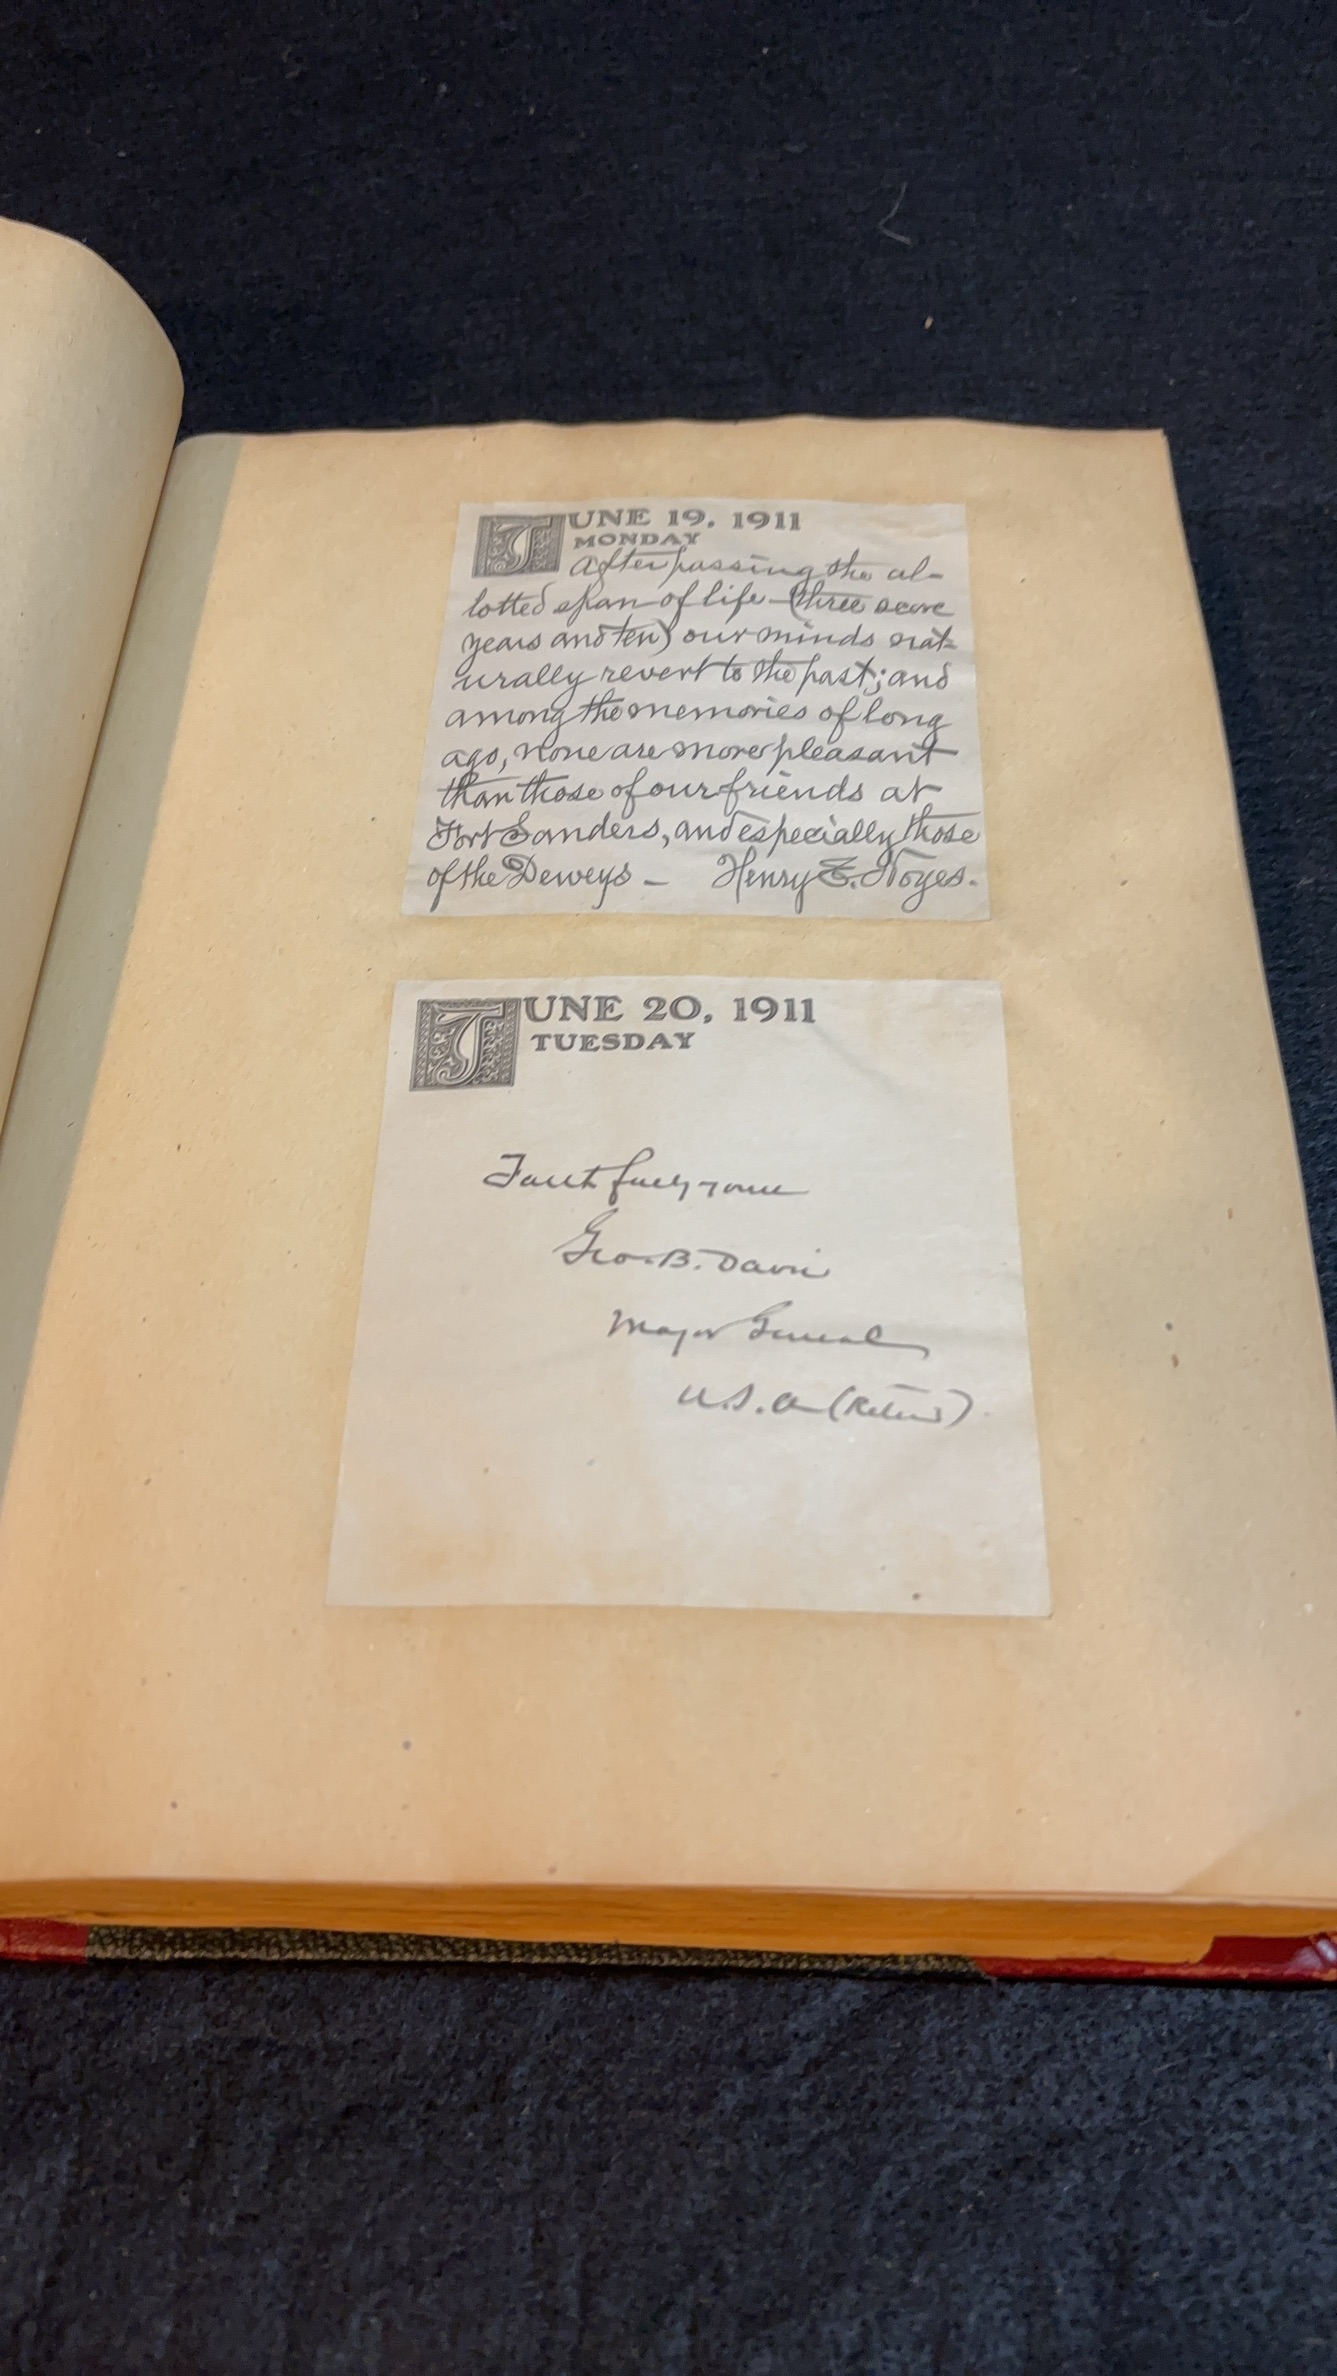 JUNE 19, 1911
MONDAY
After passing the al-
lotted span of life - (three score
years and ten) our minds nat-
urally revert to the past; and
among the memories of long
ago, none are more pleasant
than those of our friends at
Fort Sanders, and especially those
of the Deweys - Henry E. Noyes.
JUNE 20, 1911
TUESDAY
Faithfully yours
Geo. B. Davis
Major General
U.S.A (Retired)